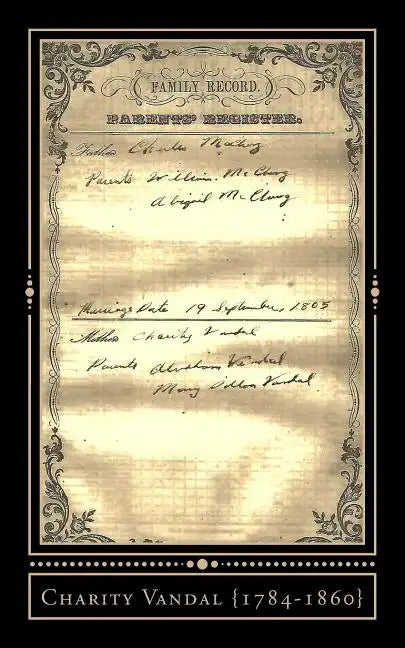 FAMILY RECORD.
PARENTS' REGISTER.
Father Charles McClung
Parents William McClung
Abigail McClung
Marriage Date 19 September, 1805
Mother Charity Vandal
Parents Abraham Vandal
Mary Vandal
CHARITY VANDAL {1784-1860}